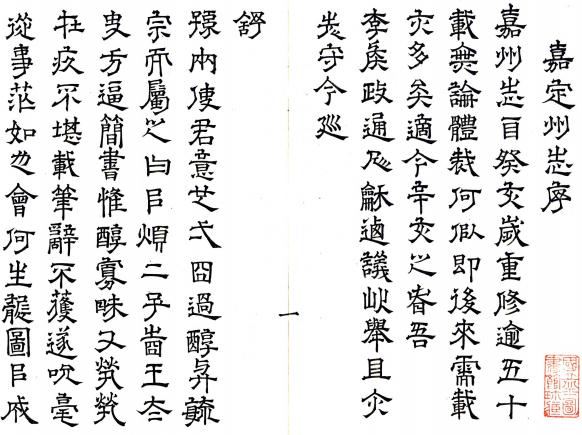 嘉定州志序
嘉州志自癸亥歲重修逾五十
載無論體裁何似即後來需載
亦多矣適今辛亥之春吾
李矦政通人龢議此舉且亦
守今巡
舒
豫兩使君意也弋囧過醇
宗而屬之㠯煩二子耑王
叟方逼簡書惟醇寡昧又煢煢
在疚不堪載筆辭不獲遂吮毫
從事茫如也會何生龍圖㠯戚
一